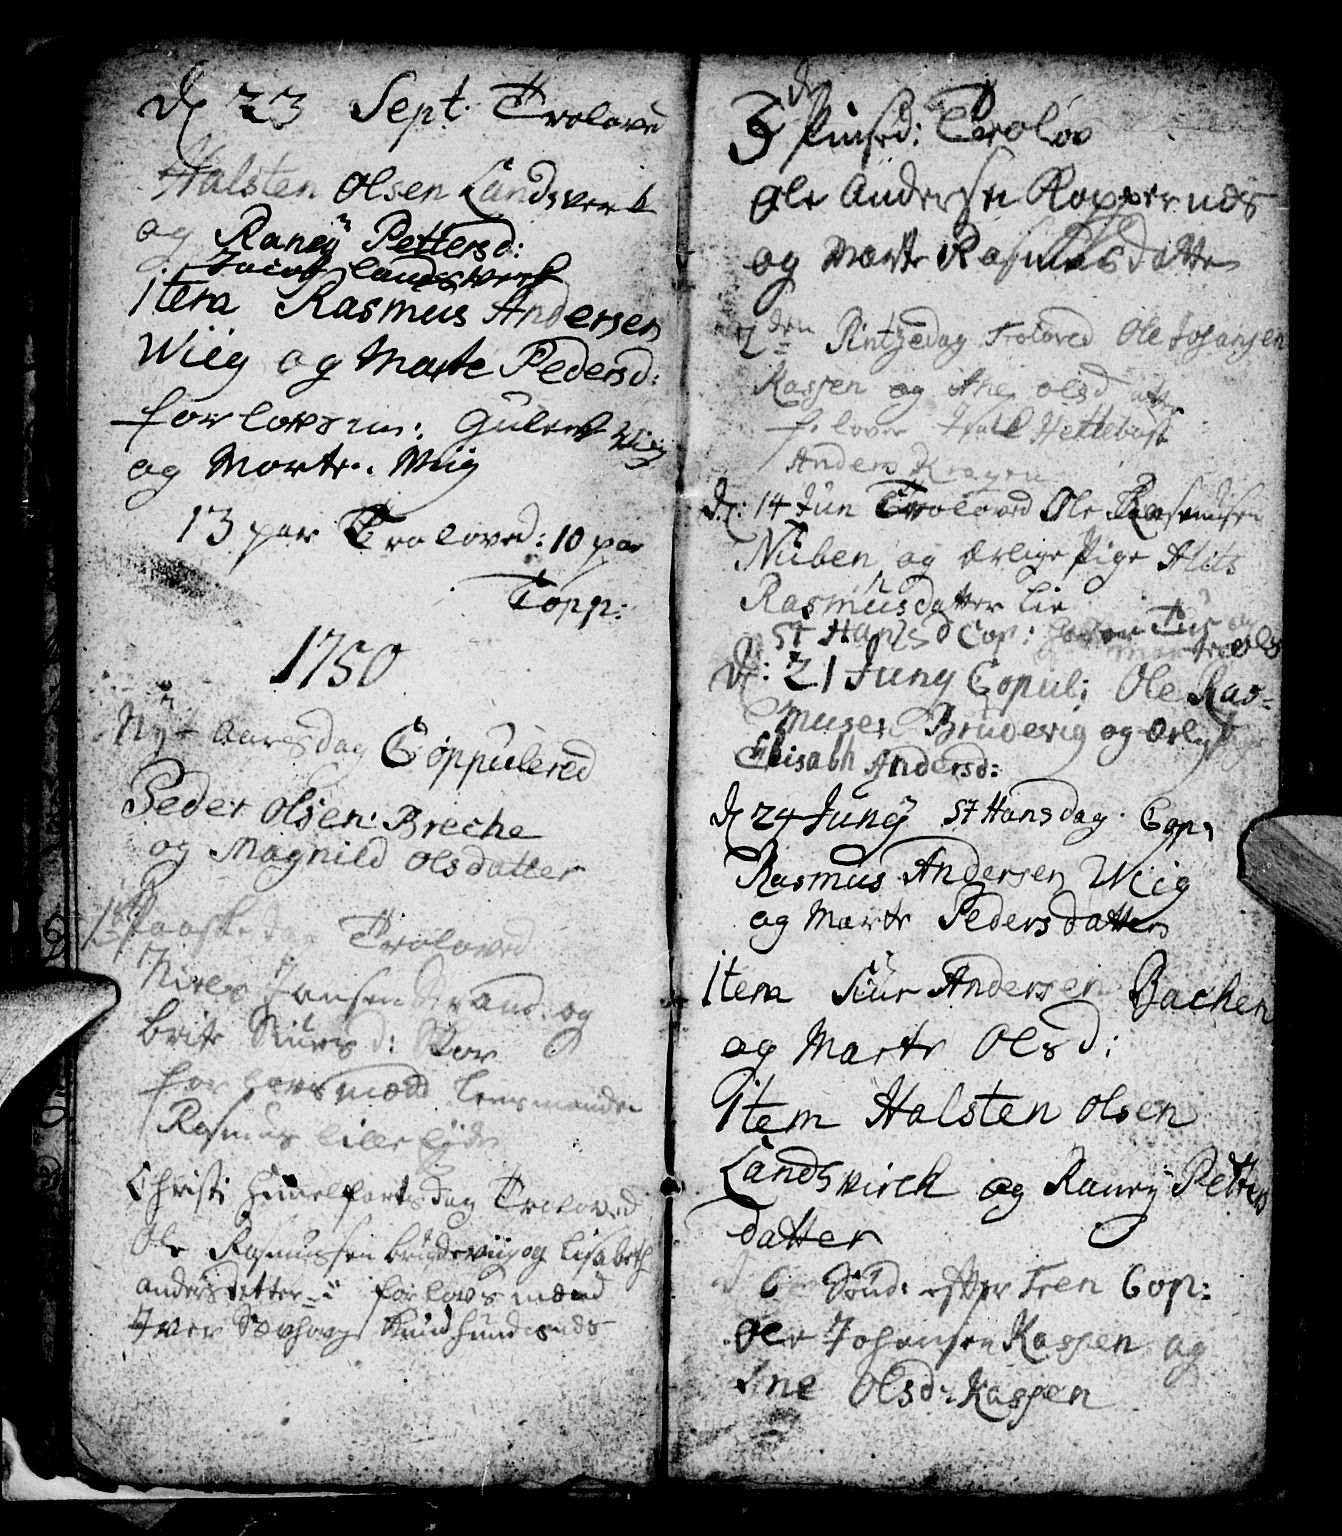 d 23 Sept. Troloved
Halsten Olsen Landsverk
og Raneÿ Pettersd:
Jacob Landsverk
Item Rasmus Andersen
Wiig og Marte Pedersd:
forlovsm: Gulect Wiig
og Morten Wiig
13 par Troloved: 10 par
Copp:
1750
Nÿt aarsdag Coppulered
Peder Olsen Breche
og Magnild Olsdatter
1 Paaske dag Troloved
Niels Jansen Strand og
Brite Siursd: Skor
forlovsmænd Lensmanden
Rasmus Lillefyde
Christi Himelfartsdag Troloved
Ole Rasmussen Brudeviig og Lisabeth
andersdatter forlovsmænd
Iver
3 den Pinsed: Trolov
Ole Andersen Kopperuds
og Marte Rasmusdatter
2 den Pintzedag Troloved Ole Johansen
Kaspen og Ane Olsdatter
forlover Hettebost
Anders Kragen
d: 14 Jun Troloved Ole Rasmussen
Nüben og ærlige Pige Alits
Rasmusdatter Lie
St Hansd Cop: Siur og
Marte Ols
d: 21 Junÿ Copul: Ole Ras-
musen Brüdevig og ærlig Pige
Elisabh Andersd:
d 24 Junÿ St Hansdag Cop:
Rasmus Andersen Wiig
og Marte Pedersdatter
Item Siur Andersen Bachen
og Marte Olsd:
Item Halsten Olsen
Landsvirck og Raneÿ Petters
datter
d 6 Sönd: efter Tren Cop:
Ole Johansen Kaspen og
Ane Olsd: Kaspen